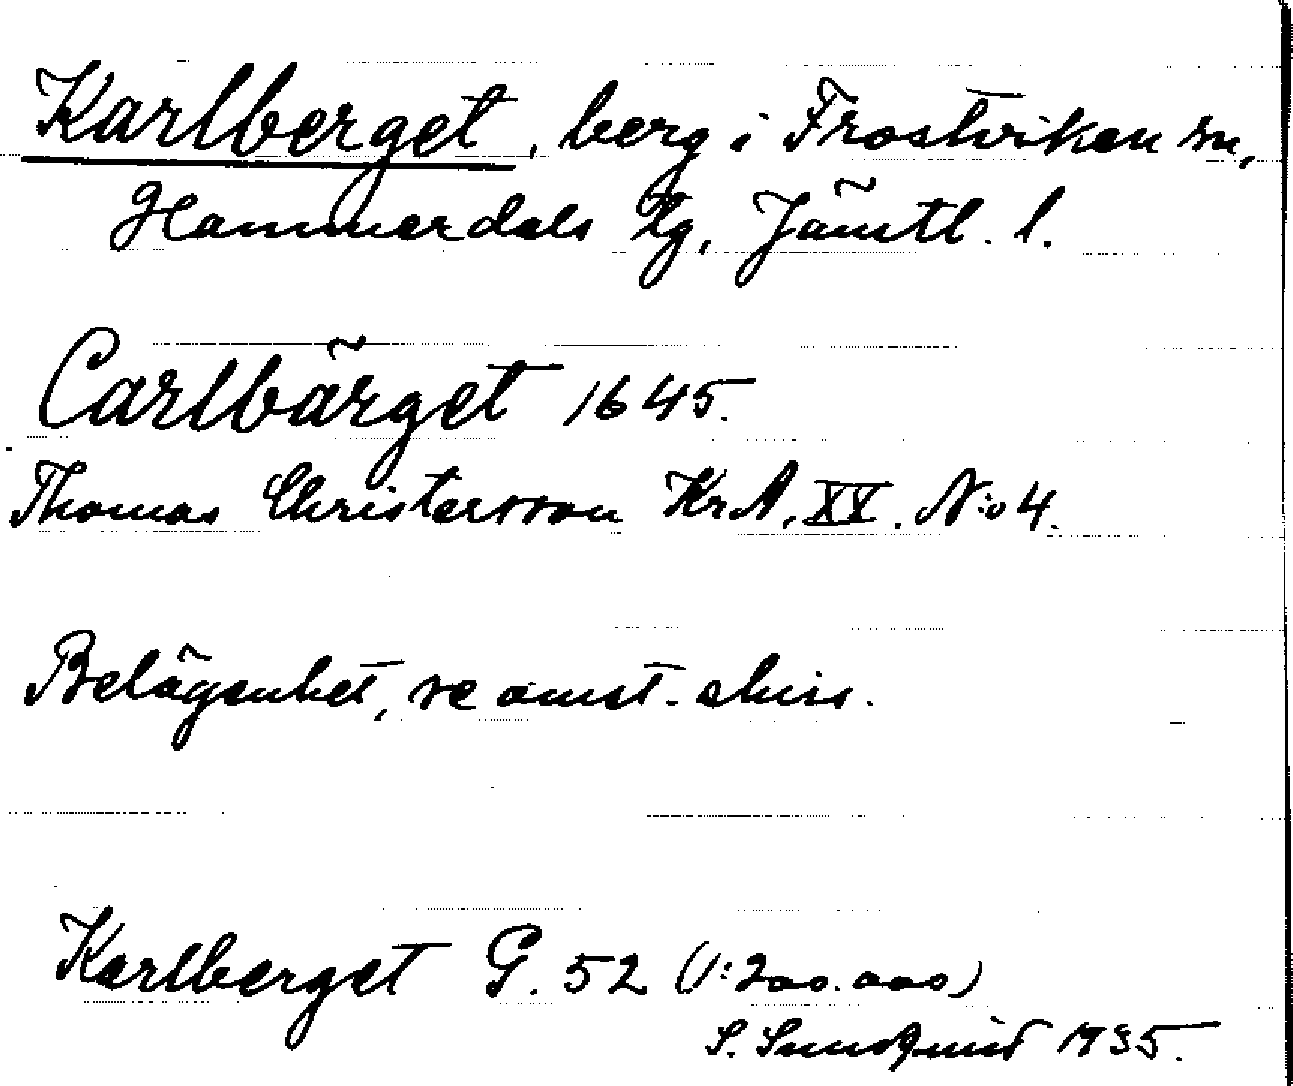 Karlberget, berg i Frostviken sn,
Hammerdals tg, Jämtl. l.
Carlbärget 1645.
Thomas Christersson KrA, XV. N:o 4.
Belägenhet, se omst. skiss.
Karlberget G. 52 (1:200.000)
S. Sundquist 1935.